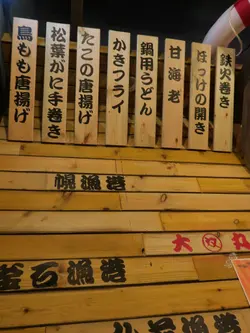 鉄火巻き
ほっけの開き
甘海老
鍋用うどん
かきフライ
たこの唐揚げ
松葉がに手巻き
鳥もも唐揚げ
幌漁港
大漁丸
釜石漁港